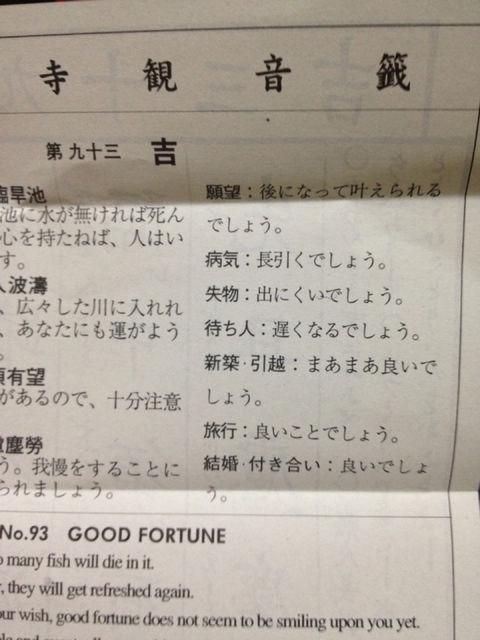 寺観音籤
第九十三 吉
旱池
池に水が無ければ死ん
心を持たねば、人はい
す。
波濤
、広々した川に入れれ
、あなたにも運がよう
。
有望
があるので、十分注意
塵勞
う。我慢をすることに
られましょう。
願望：後になって叶えられる
でしょう。
病気：長引くでしょう。
失物：出にくいでしょう。
待ち人：遅くなるでしょう。
新築·引越：まあまあ良いで
しょう。
旅行：良いことでしょう。
結婚·付き合い：良いでしょ
う。
No.93 GOOD FORTUNE
many fish will die in it.
, they will get refreshed again.
our wish, good fortune does not seem to be smiling upon you yet.